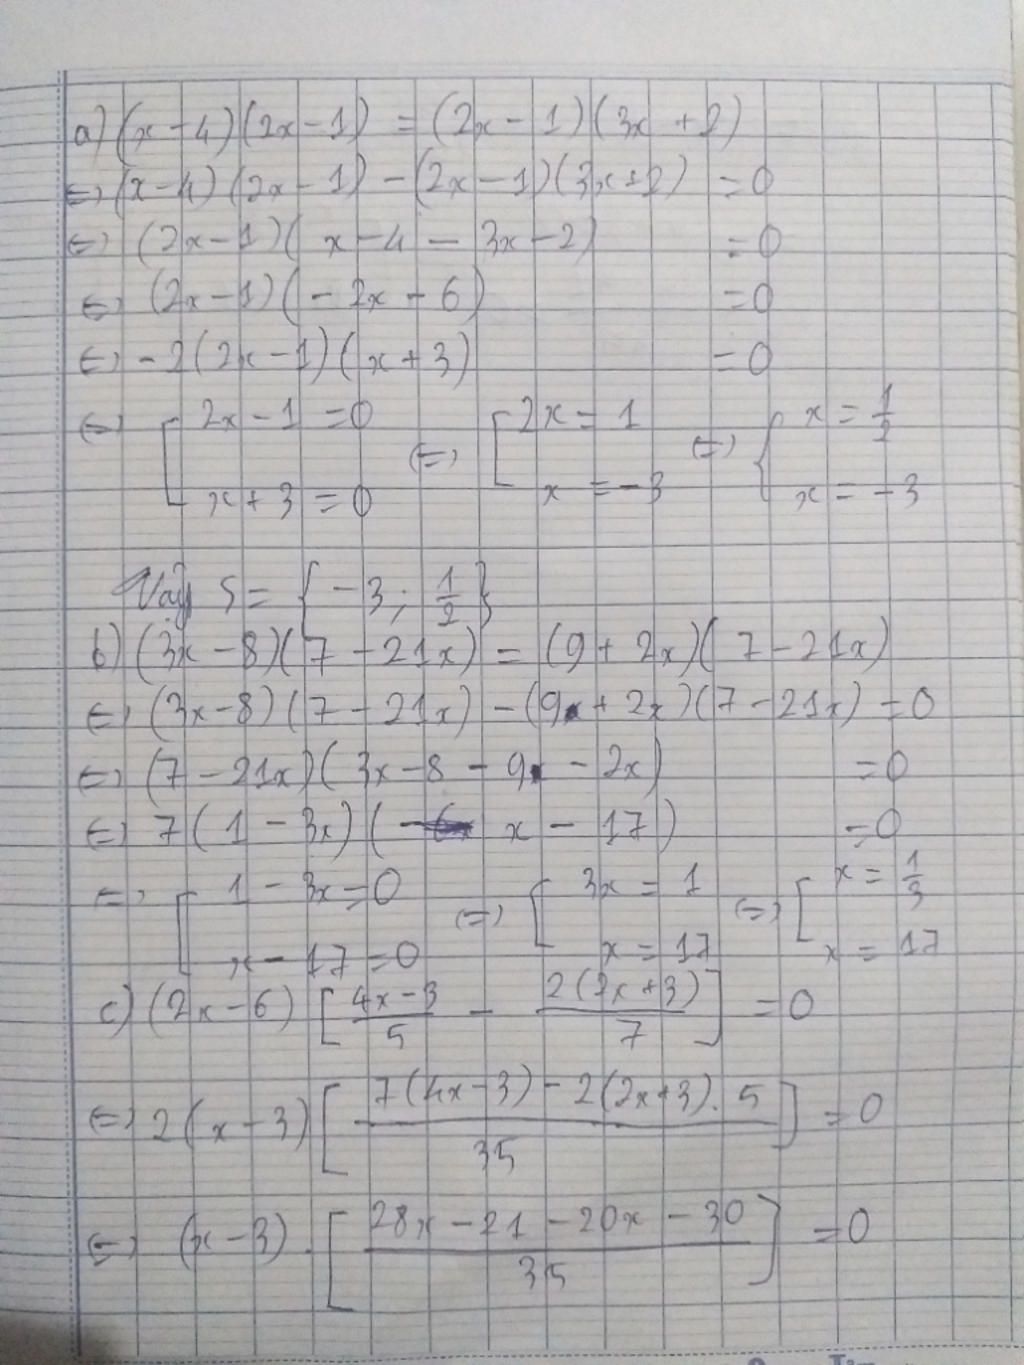 a) (x-4)(2x-1) = (2x-1)(3x+2)
⇔ (x-4)(2x-1) - (2x-1)(3x+2) = 0
⇔ (2x-1)(x-4-3x-2) = 0
⇔ (2x-1)(-2x-6) = 0
⇔ -2(2x-1)(x+3) = 0
⇔ [ 2x-1 = 0 ⇔ [ 2x = 1 ⇔ { x = 1/2
x+3 = 0 x = -3 x = -3
Vậy S = {-3; 1/2}
b) (3x-8)(7-21x) = (9+2x)(7-21x)
⇔ (3x-8)(7-21x) - (9+2x)(7-21x) = 0
⇔ (7-21x)(3x-8-9-2x) = 0
⇔ 7(1-3x)(x-17) = 0
⇔ [ 1-3x = 0 ⇔ [ 3x = 1 ⇔ [ x = 1/3
x-17 = 0 x = 17 x = 17
c) (2x-6) [ (4x-3)/5 - 2(2x+3)/7 ] = 0
⇔ 2(x-3) [ (7(4x-3) - 2(2x+3).5)/35 ] = 0
⇔ (x-3).[ (28x-21-20x-30)/35 ] = 0